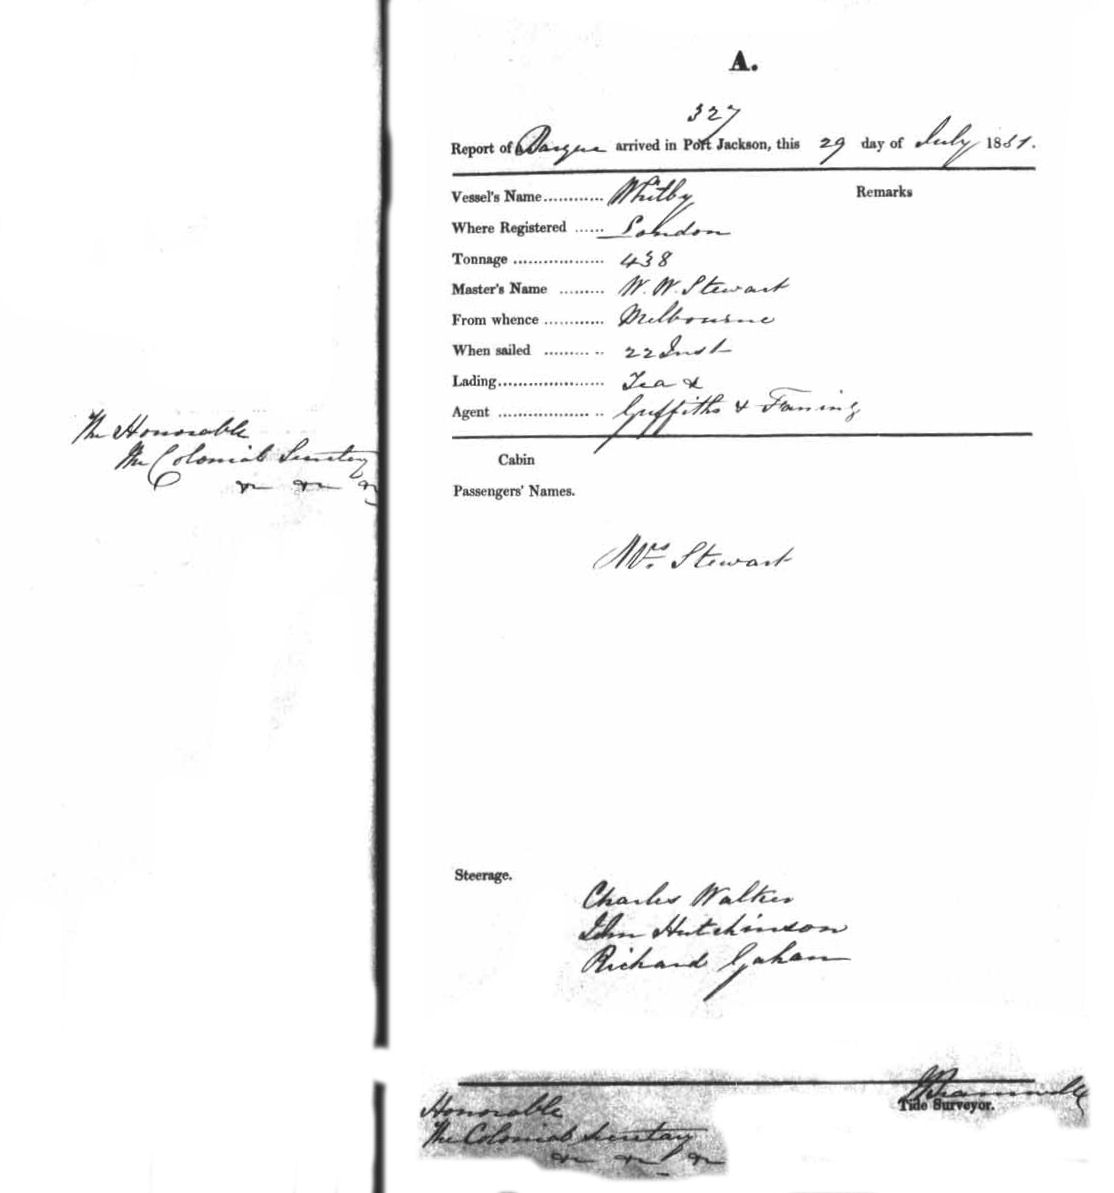 The Honorable
The Colonial Secretary
&c &c &c
A.
327
Report of Barque arrived in Port Jackson, this 29 day of July 1851.
Vessel's Name............ Whitby Remarks
Where Registered ...... London
Tonnage .................. 438
Master's Name ......... W. W. Stewart
From whence ............ Melbourne
When sailed ......... .. 22 Inst
Lading..................... Tea &c
Agent .................. .. Griffiths & Fanning
Cabin
Passengers' Names.
Mrs. Stewart
Steerage.
Charles Walker
John Hutchinson
Richard Gahan
Tide Surveyor.
Honorable
The Colonial Secretary
&c &c &c